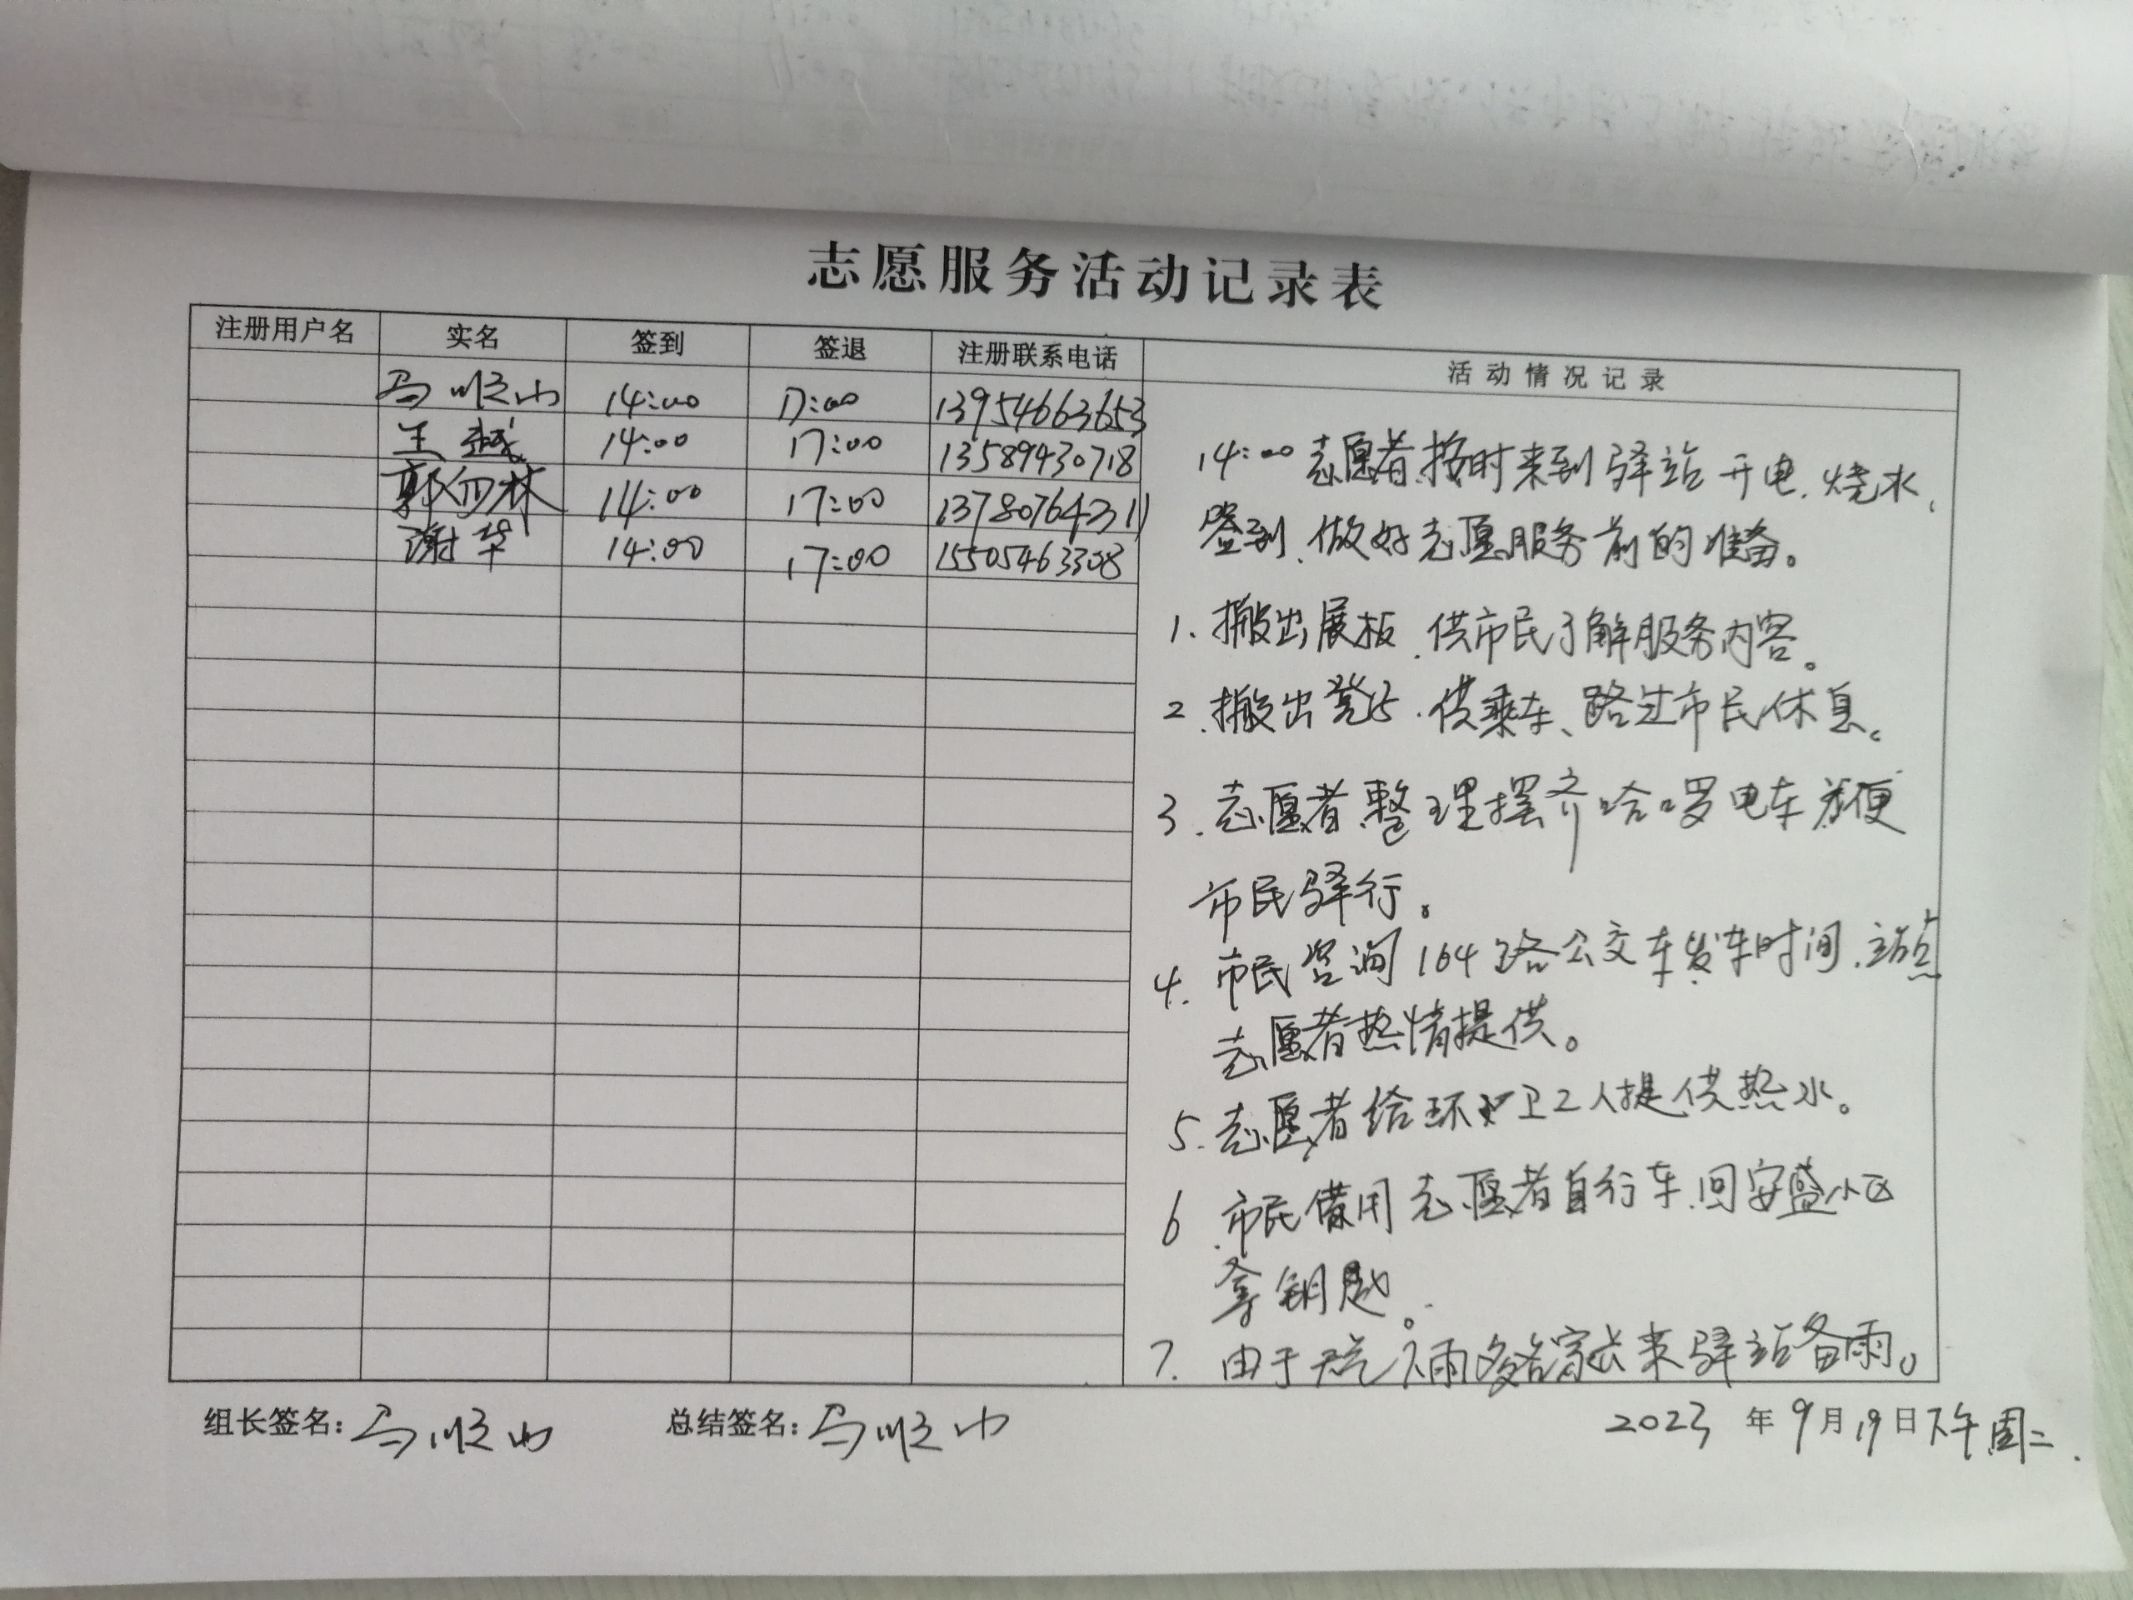 志愿服务活动记录表
注册用户名 实名 签到 签退 注册联系电话 活动情况记录
马顺山 14:00 17:00 13954663653
王越 14:00 17:00 13589430718
郭向林 14:00 17:00 13780764311
谢华 14:00 17:00 15505463308
14:00志愿者按时来到驿站开电、烧水、
签到、做好志愿服务前的准备。
1.搬出展板、供市民了解服务内容。
2.搬出凳子、供乘车、路过市民休息。
3.志愿者整理摆齐哈啰电车方便
市民驿行。
4.市民咨询164路公交车发车时间、站点
志愿者热情提供。
5.志愿者给环卫工人提供热水。
6.市民借用志愿者自行车、回安盛小区
拿钥匙。
7.由于天气下雨多名家长来驿站备雨。
组长签名:马顺山 总结签名:马顺山 2023年9月19日下午周二.